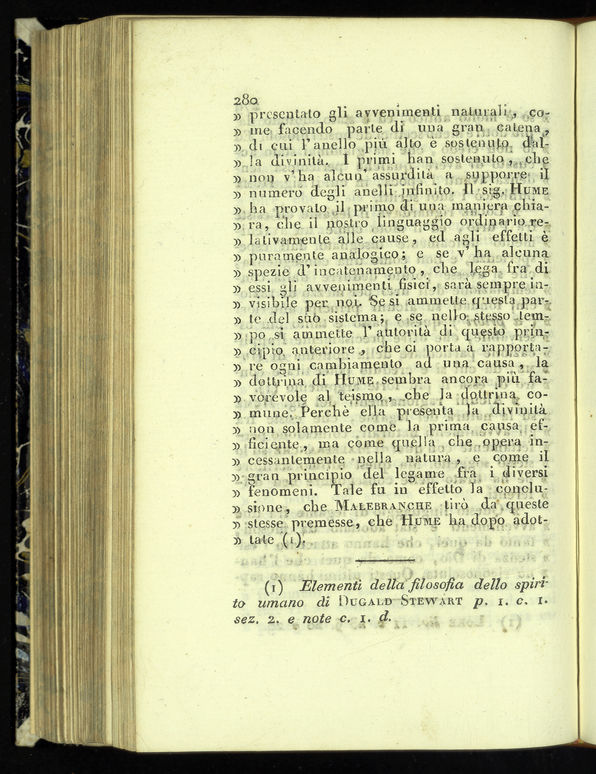 280
» presentato gli avvenimenti naturali, co-
» me facendo parte di una gran catena,
» di cui l'anello più alto e sostenuto dal-
» la divinità. I primi han sostenuto, che
» non v'ha alcun'assurdità a supporre il
» numero degli anelli infinito. Il sig. HUME
» ha provato il primo di una maniera chia-
» ra, che il nostro linguaggio ordinario re-
» lativamente alle cause, ed agli effetti è
» puramente analogico; e se v'ha alcuna
» spezie d'incatenamento, che lega fra di
» essi gli avvenimenti fisici, sarà sempre in-
» visibile per noi. Se si ammette questa par-
» te del suo sistema; e se nello stesso tem-
» po si ammette l'autorità di questo prin-
» cipio anteriore, che ci porta a rapporta-
» re ogni cambiamento ad una causa, la
» dottrina di HUME sembra ancora più fa-
» vorevole al teismo, che la dottrina co-
» mune. Perchè ella presenta la divinità
» non solamente come la prima causa ef-
» ficiente, ma come quella che opera in-
» cessantemente nella natura, e come il
» gran principio del legame fra i diversi
» fenomeni. Tale fu in effetto la conclu-
» sione, che MALEBRANCHE tirò da queste
» stesse premesse, che HUME ha dopo adot-
» tate (1).
(1) Elementi della filosofia dello spiri-
to umano di DUGALD STEWART p. 1. c. 1.
sez. 2. e note c. 1. d.